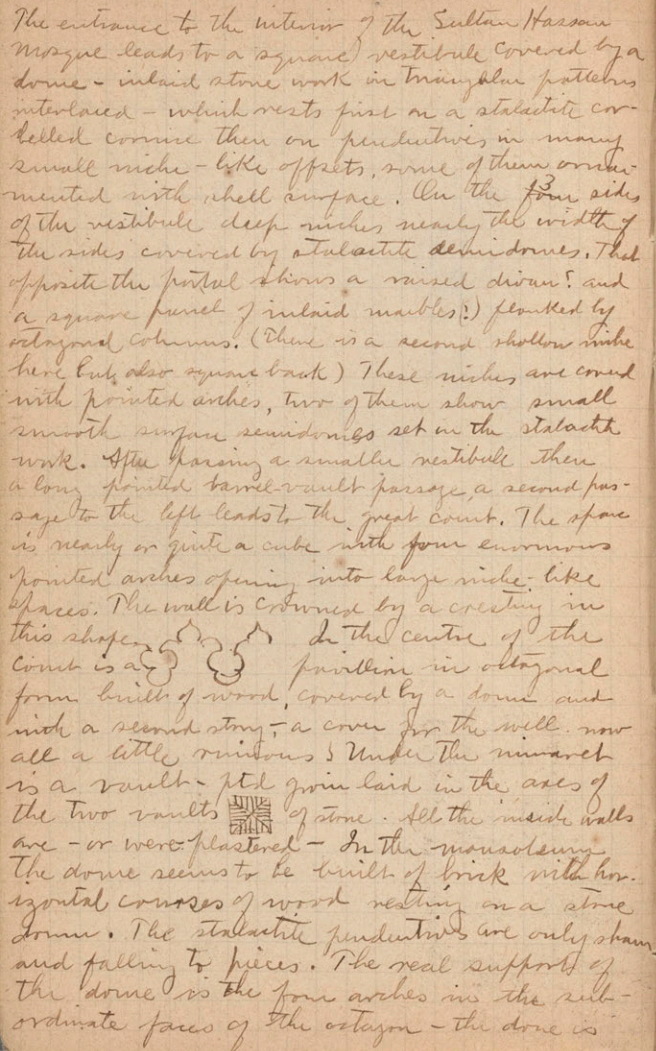 The entrance to the interior of the Sultan Hassan
Mosque leads to a square vestibule covered by a
dome - inlaid stone work in triangular patterns
interlaced - which rests first on a stalactite cor-
belled cornice then on pendentives in many
small niche-like offsets, some of them orna-
mented with shell surface. On the four 3 sides
of the vestibule deep niches nearly the width of
the sides covered by stalactite demidomes. That
opposite the portal shows a raised divan? and
a square panel of inlaid marbles(!) flanked by
octagonal columns. (There is a second shallow niche
here but also square back) These niches are covered
with pointed arches, two of them show small
smooth surface semidomes set in the stalactite
work. After passing a smaller vestibule then
a long pointed barrel-vault passage, a second pas-
sage to the left leads to the great court. The space
is nearly or quite a cube with four enormous
pointed arches opening into large niche-like
spaces. The wall is crowned by a cresting in
this shape. In the centre of the
court is a pavillion in octagonal
form built of wood, covered by a dome and
with a second story, - a cover for the well. now
all a little ruinous! Under the minaret
is a vault - ptd groin laid in the axes of
the two vaults of stone. All the inside walls
are - or were plastered - In the mausoleum
the dome seems to be built of brick with hor-
izontal courses of wood resting on a stone
drum. The stalactite pendentives are only sham
and falling to pieces. The real support of
the dome is the four arches in the sub-
ordinate faces of the octagon - the dome is